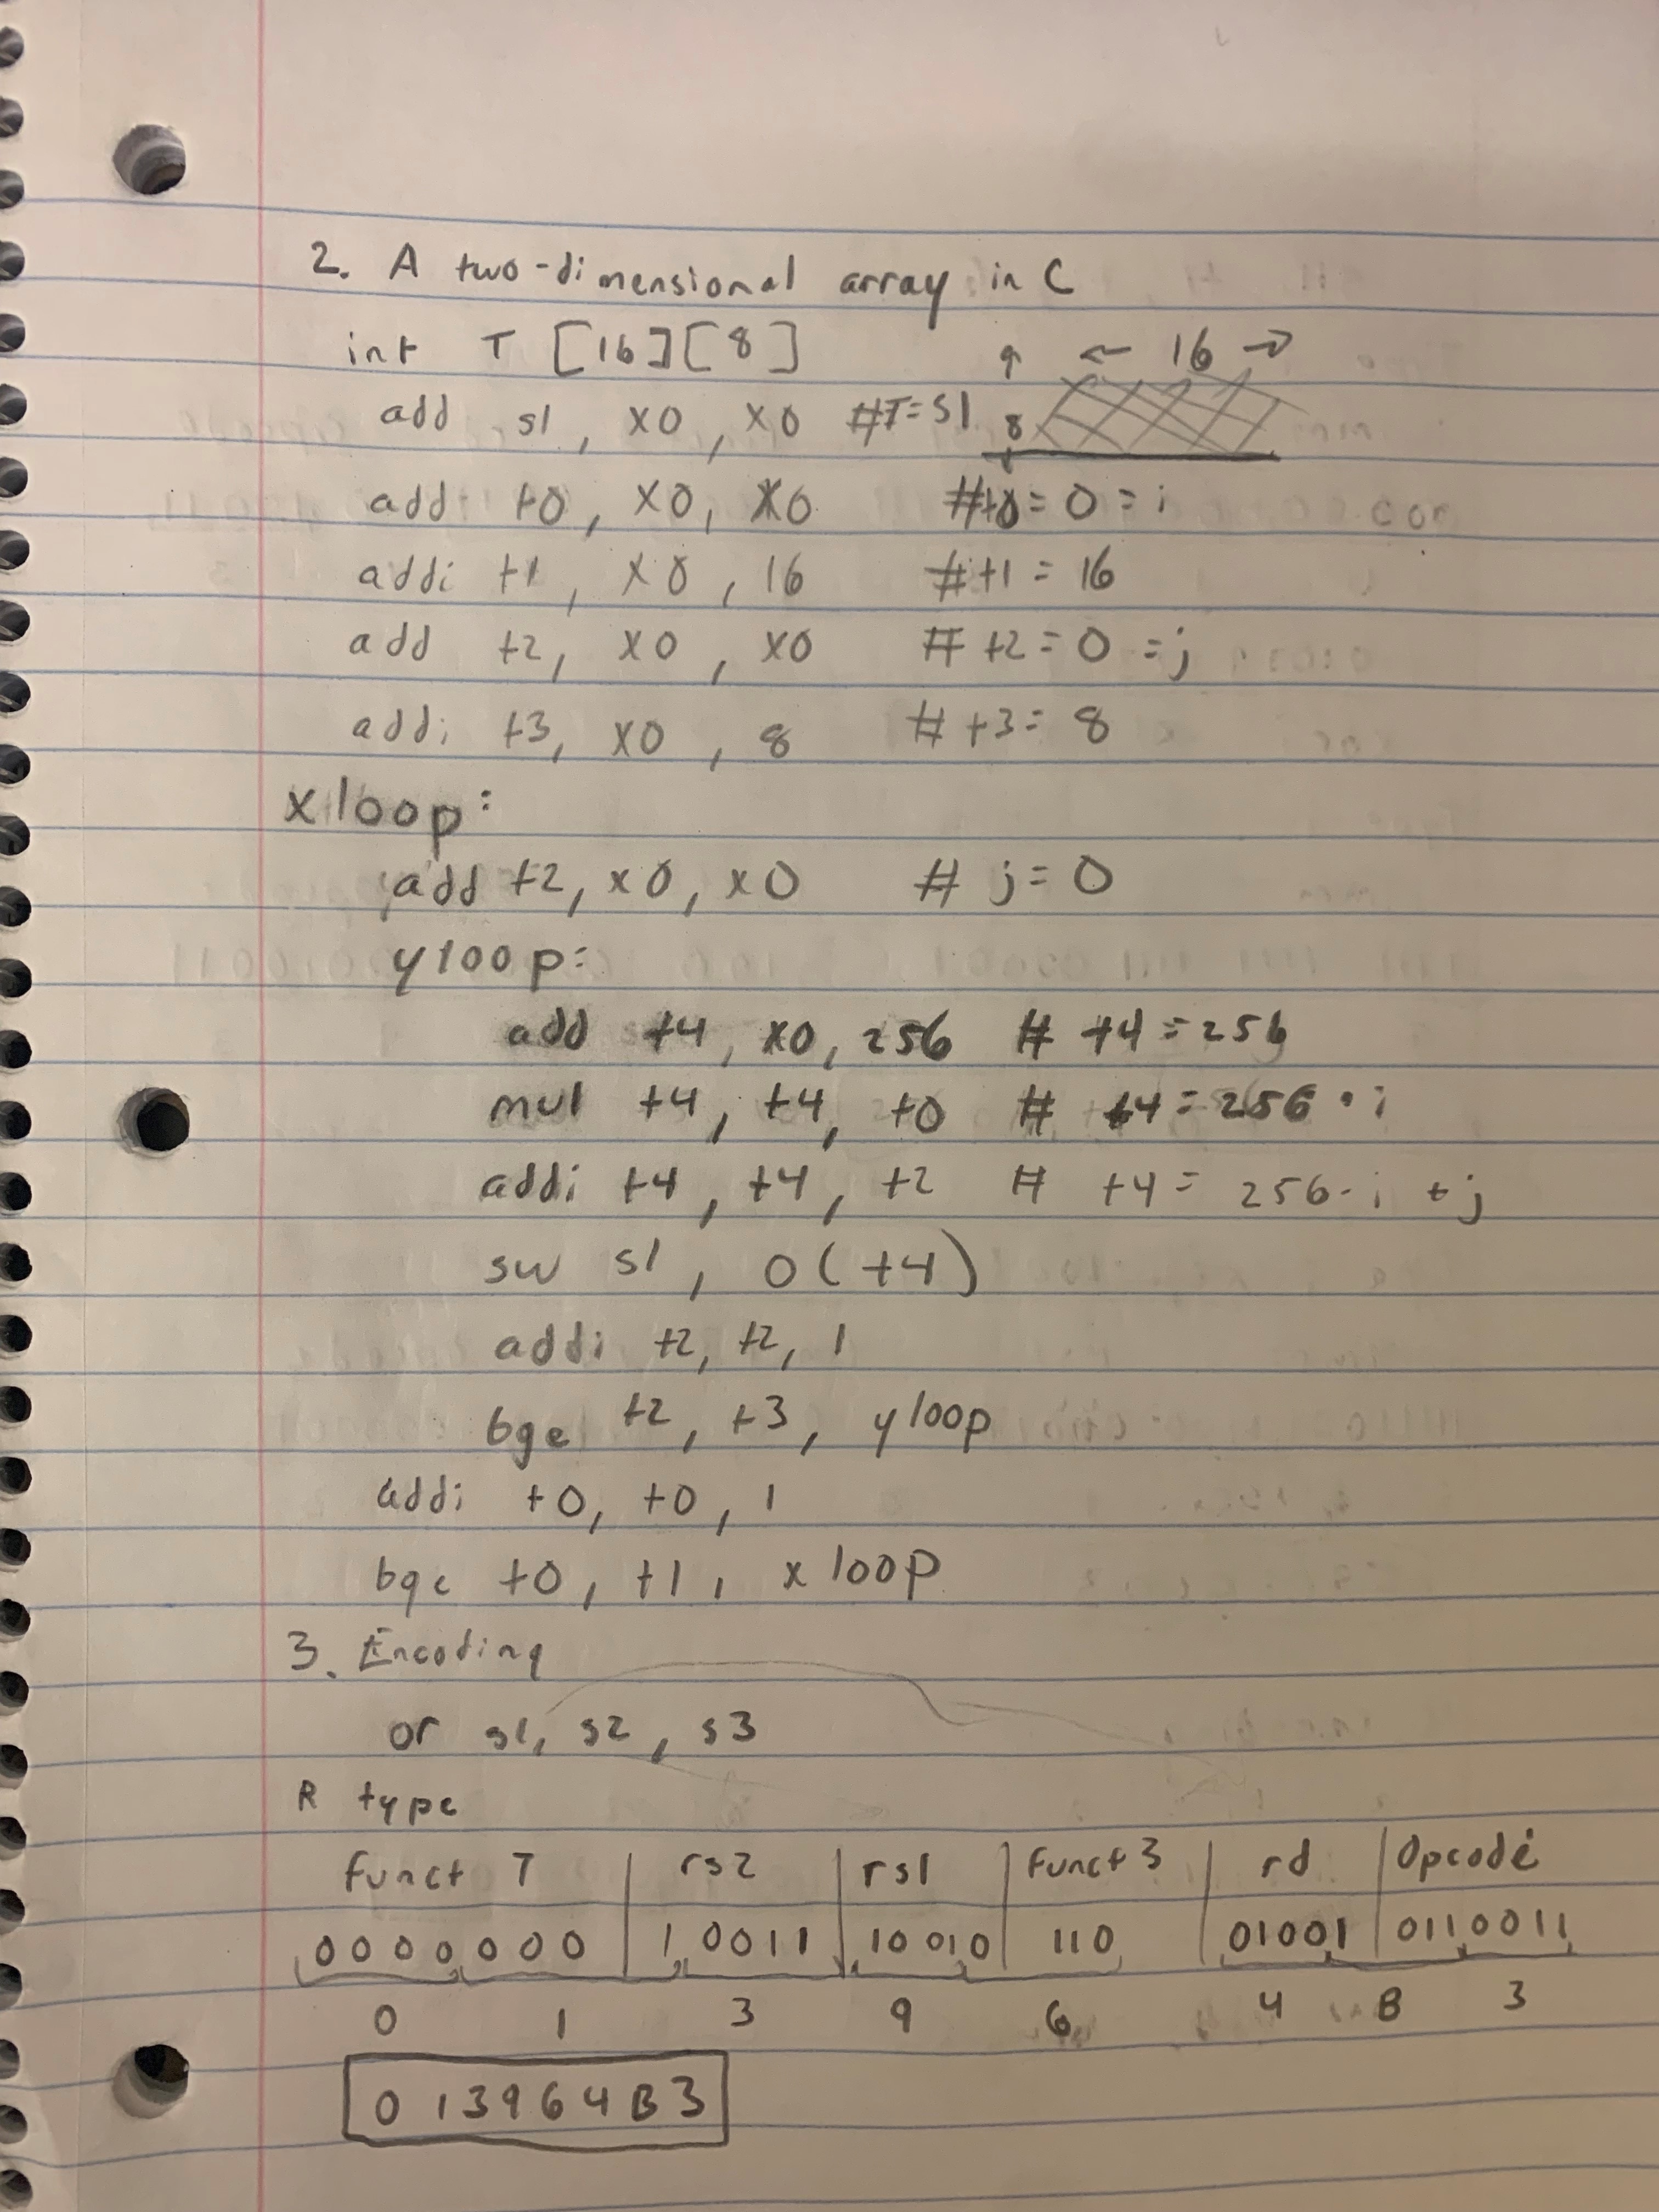 2. A two-dimensional array in C
int T [16][8] ↑ ← 16 →
add s1, x0, x0 #T=s1 8 ↓
add t0, x0, x0 #t0=0=i
addi t1, x0, 16 #t1=16
add t2, x0, x0 #t2=0=j
addi t3, x0, 8 #t3=8
xloop:
add t2, x0, x0 # j=0
yloop:
add t4, x0, 256 # t4=256
mul t4, t4, t0 # t4=256·i
addi t4, t4, t2 # t4=256·i+j
sw s1, 0(t4)
addi t2, t2, 1
bge t2, t3, yloop
addi t0, t0, 1
bge t0, t1, xloop
3. Encoding
or s1, s2, s3
R type
funct 7 | rs2 | rs1 | funct3 | rd | Opcode
0000000 | 10011 | 10010 | 110 | 01001 | 0110011
0 1 3 9 6 4 B 3
013964B3